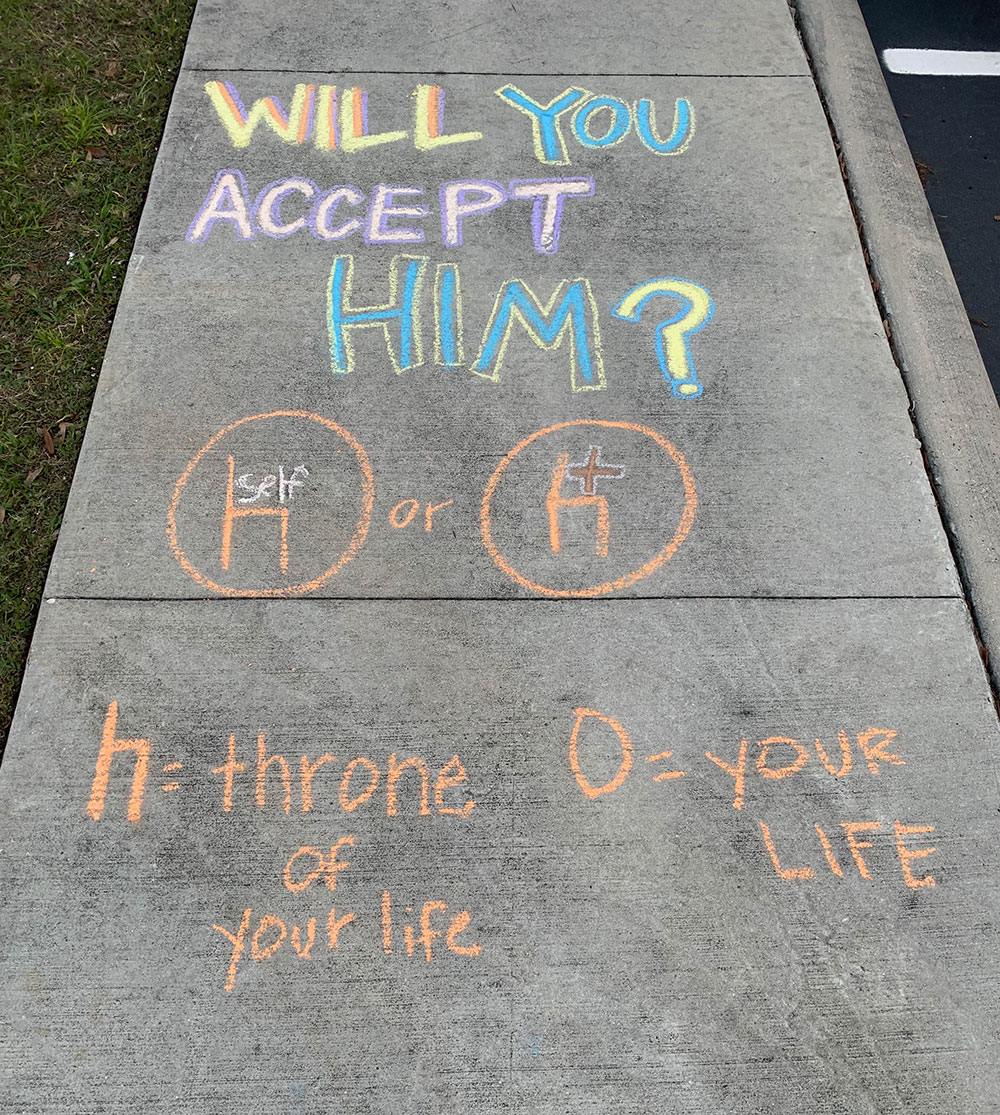 WILL YOU
ACCEPT
HIM?
self or
h = throne
of
your life
O = YOUR
LIFE